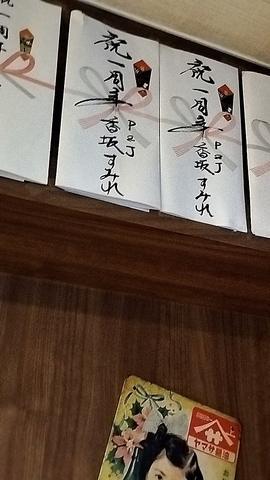 祝一周年
P2J
香坂すみれ
祝一周年
P2J
香坂すみれ
ヤマサ醤油